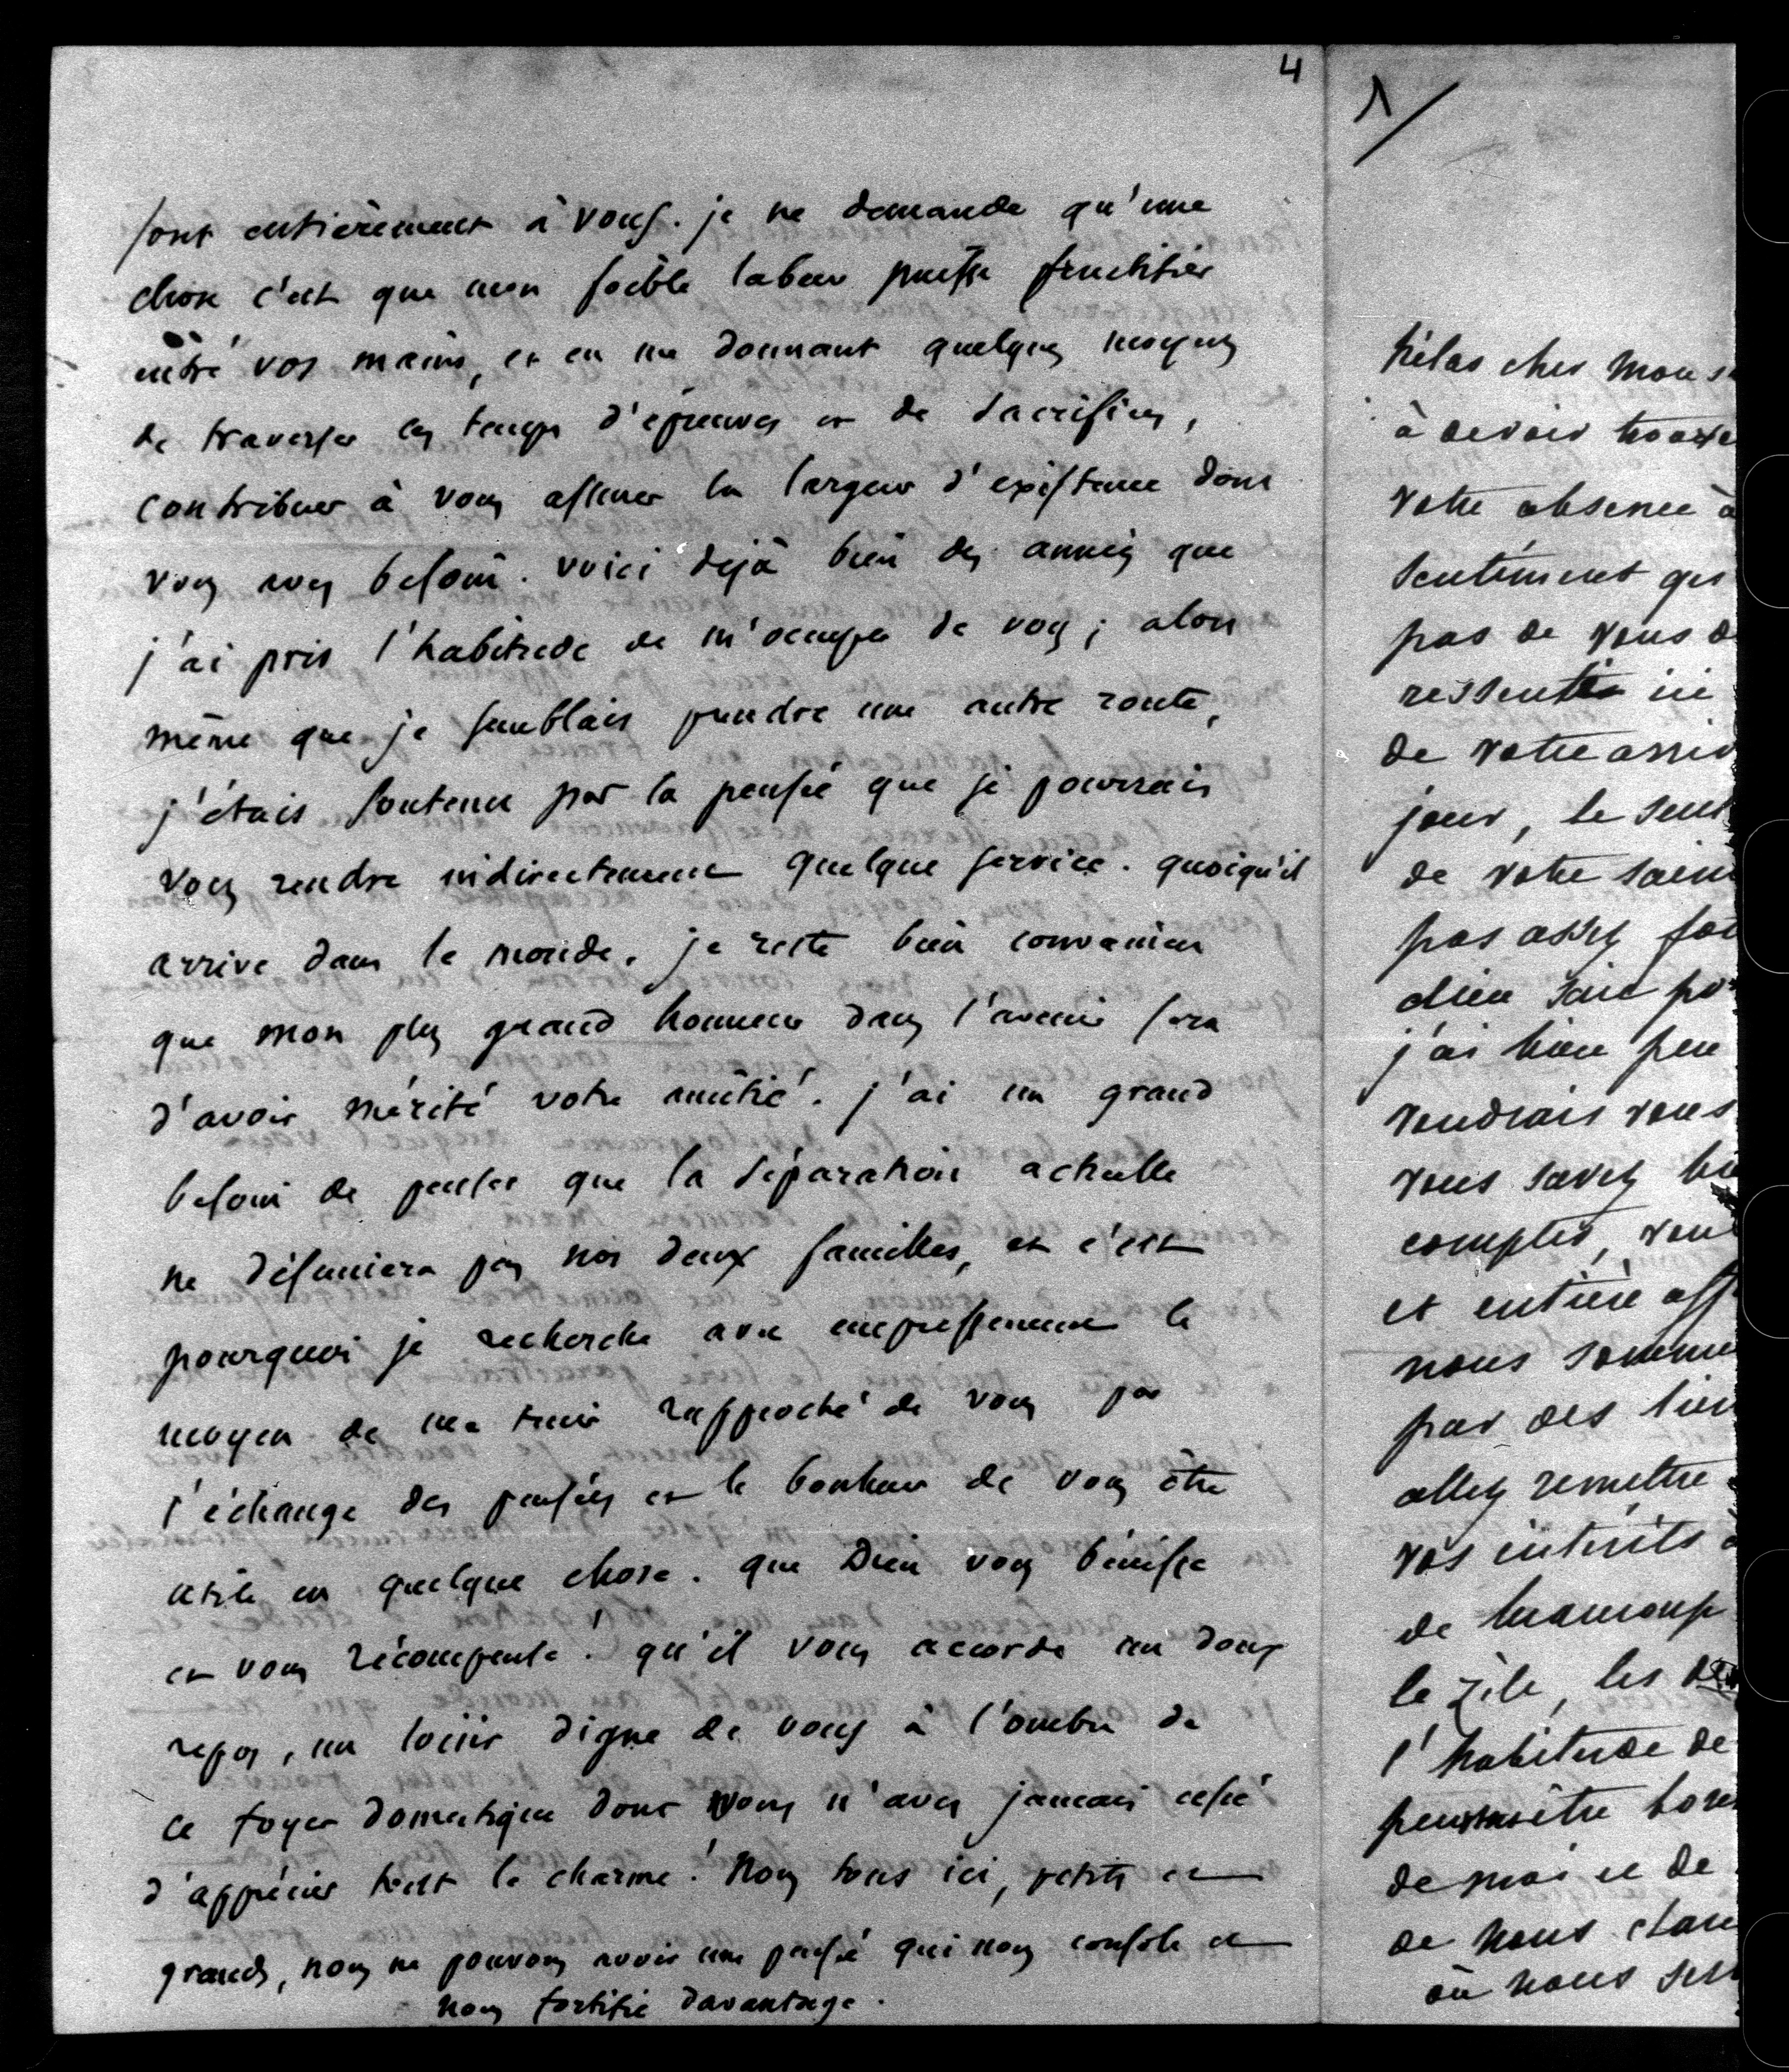 4
sont entièrement à vous. je ne demande qu'une
chose c'est que mon foible labeur puisse fructifier
entre vos mains, et en me donnant quelques moyens
de traverser ces temps d'épreuves et de sacrifices,
contribuer à vous assurer la largeur d'existence dont
vous avez besoin. voici déjà bien des années que
j'ai pris l'habitude de m'occuper de vous ; alors
même que je semblais prendre une autre route,
j'étais soutenu par la pensée que je pourrais
vous rendre indirectement quelque service. quoiqu'il
arrive dans le monde, je reste bien convaincu
que mon plus grand honneur dans l'avenir sera
d'avoir mérité votre amitié. j'ai un grand
besoin de penser que la séparation actuelle
ne désunira pas nos deux familles, et c'est
pourquoi je recherche avec empressement le
moyen de me tenir rapproché de vous par
l'échange des pensées et le bonheur de vous être
utile en quelque chose. que Dieu vous bénisse
et vous récompense ! qu'il vous accorde un doux
repos, un loisir digne de vous à l'ombre de
ce foyer domestique dont vous n'avez jamais cessé
d'apprécier tout le charme ! Nous tous ici, petits et
grands, nous ne pouvons avoir une pensée qui nous console et
nous fortifie davantage.
1/
hélas cher Mons
à devoir
votre absence à
sentiment qui
pas de vous d
ressentir ici
de votre arriv
jour, le seul
de votre
pas assez
dieu sait
j'ai bien peu
voudrais vous
vous savez bi
compter, vou
et entière aff
nous somme
par des lien
allez remettre
vos intérêts
de beaucoup
le zèle, les
l'habitude de
être
de moi et de
de nous
où nous